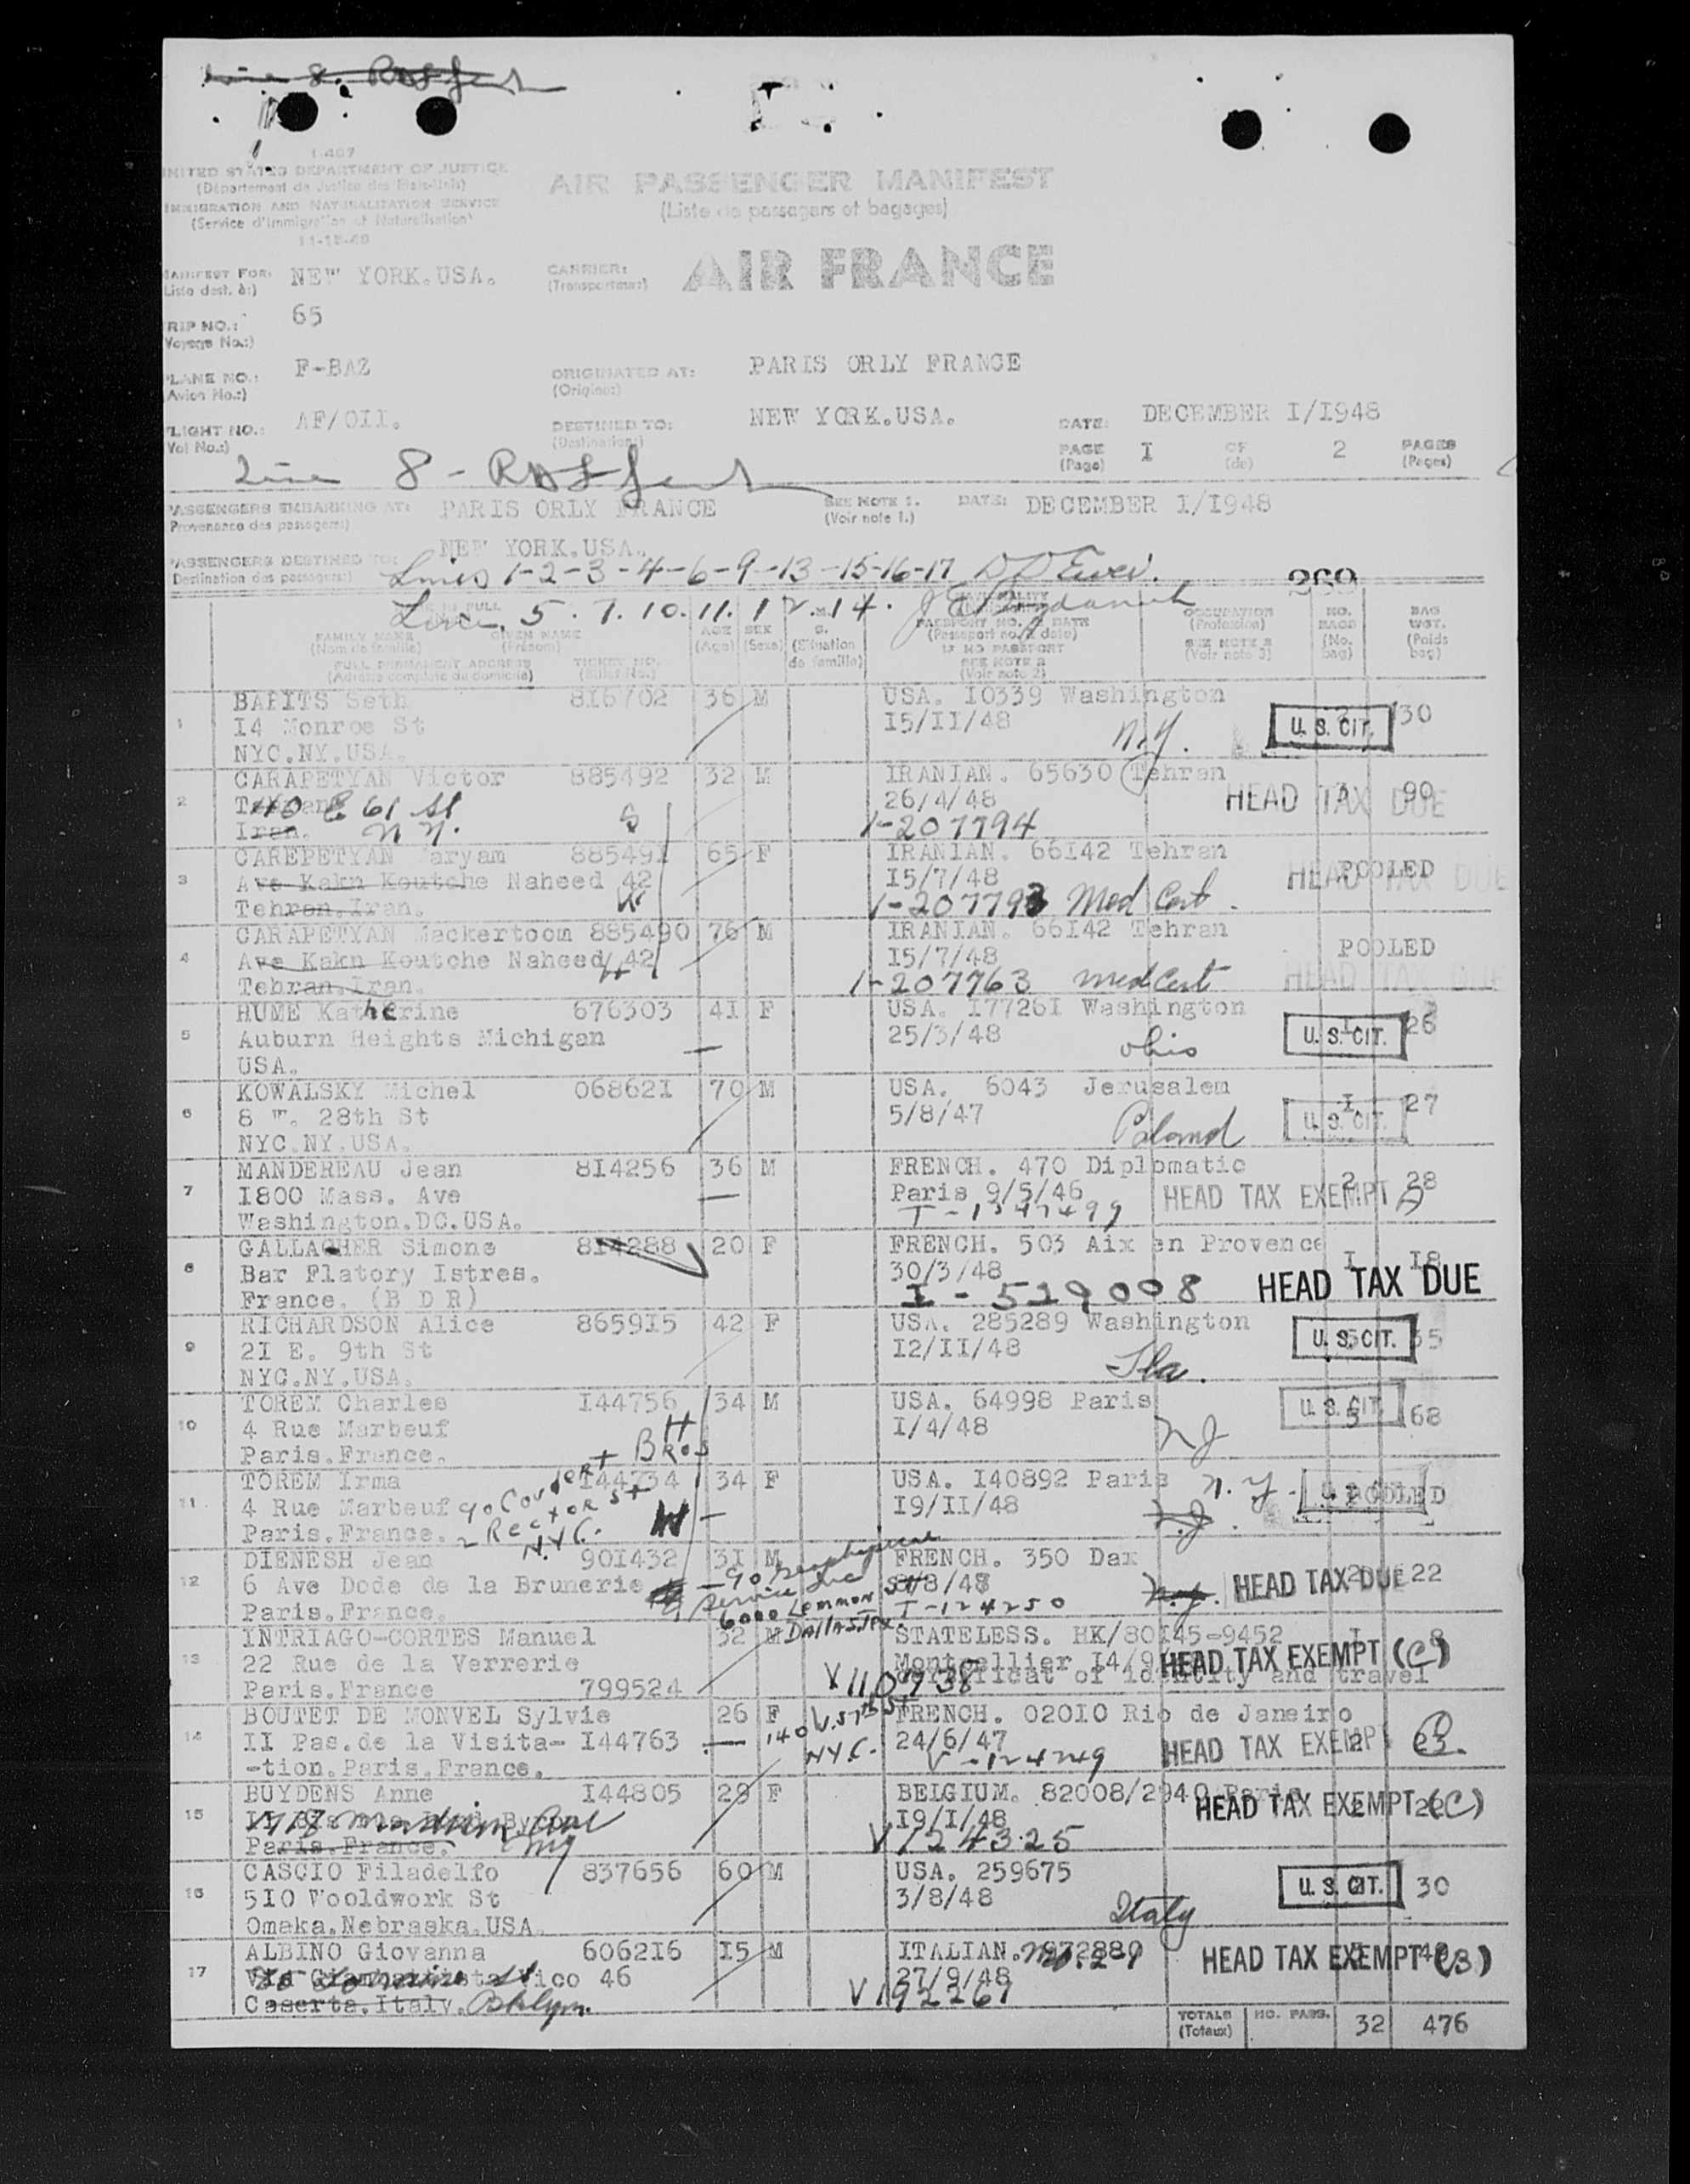 I-467
UNITED STATES DEPARTMENT OF JUSTICE
(Département de Justice des Etats-Unis)
IMMIGRATION AND NATURALIZATION SERVICE
(Service d'Immigration et Naturalisation)
11-18-48
AIR PASSENGER MANIFEST
(Liste de passagers et bagages)
MANIFEST FOR: NEW YORK.USA.
(Liste dest. à:)
CARRIER: AIR FRANCE
(Transporteur:)
TRIP NO.: 65
(Voyage No.:)
PLANE NO.: F-BAZ
(Avion No.:)
ORIGINATED AT: PARIS ORLY FRANCE
(Origine:)
FLIGHT NO.: AF/OII.
(Vol No.:)
DESTINED TO: NEW YORK.USA.
(Destination:)
DATE: DECEMBER I/I948
PAGE I OF 2 PAGES
(Page) (de) (Pages)
Line 8 -
PASSENGERS EMBARKING AT: PARIS ORLY FRANCE
Provenance des passagers:)
SEE NOTE 1. DATE: DECEMBER 1/I948
(Voir note 1.)
PASSENGERS DESTINED TO: NEW YORK.USA.
Destination des passagers:)
Lines 1-2-3-4-6-9-13-15-16-17
269
Lines 5. 7. 10. 11. 12. 14.
FAMILY NAME GIVEN NAME
(Nom de famille) (Prénom)
FULL PERMANENT ADDRESS TICKET NO.
(Adresse complète du domicile) (Billet No.)
AGE SEX
(Age) (Sexe) (Situation de famille)
PASSPORT NO. & DATE
(Passeport no. & date)
IF NO PASSPORT
SEE NOTE 2
(Voir note 2)
OCCUPATION
(Profession)
SEE NOTE 3
(Voir note 3)
NO. BAGS
(No. bag)
BAG WGT.
(Poids bag)
1 BARITS Seth 816702 36 M USA. I0339 Washington
I4 Monroe St I5/II/48 N.Y. U. S. CIT. 30
NYC.NY.USA.
2 CARAPETYAN Victor 885492 32 M IRANIAN. 65630 Tehran
40 E 61 St 26/4/48 HEAD TAX DUE 90
Iran. N Y. S 1-207794
3 CAREPETYAN Maryam 885491 65 F IRANIAN. 66I42 Tehran
Ave Kakn Koutche Naheed 42 I5/7/48 POOLED HEAD TAX DUE
Tehran.Iran. 1-207793 Med Cert.
4 CARAPETYAN Mackertoom 885490 76 M IRANIAN. 66I42 Tehran
Ave Kakn Koutche Naheed 42 I5/7/48 POOLED
Tehran.Iran. 1-207763 Med Cert HEAD TAX DUE
5 HUME Katherine 676303 4I F USA. I7726I Washington
Auburn Heights Michigan 25/3/48 Ohio U. S. CIT. 26
USA.
6 KOWALSKY Michel 06862I 70 M USA. 6043 Jerusalem
8 W. 28th St 5/8/47 Poland U. S. CIT. I 27
NYC.NY.USA.
7 MANDEREAU Jean 8I4256 36 M FRENCH. 470 Diplomatic
I800 Mass. Ave Paris 9/5/46 HEAD TAX EXEMPT A 2 28
Washington.DC.USA.
8 GALLAGHER Simone 8I4288 20 F FRENCH. 503 Aix en Provence
Bar Flatory Istres. 30/3/48 I I8
France. (B D R) I-519008 HEAD TAX DUE
9 RICHARDSON Alice 8659I5 42 F USA. 285289 Washington
2I E. 9th St I2/II/48 Fla. U. S. CIT. 35
NYC.NY.USA.
10 TOREM Charles I44756 34 M USA. 64998 Paris
4 Rue Marbeuf H I/4/48 NJ U. S. CIT. 3 68
Paris.France.
11 TOREM Irma I44734 34 F USA. I40892 Paris N.Y. U. S. CIT. POOLED
4 Rue Marbeuf I9/II/48 N.J.
Paris.France. W
% Coudert Bros
2 Rector St
N.Y.C.
12 DIENESH Jean 90I432 3I M FRENCH. 350 Dax
6 Ave Dode de la Brunerie 8/48 HEAD TAX DUE 2 22
Paris.France. I-124250
% Geophysical Service Inc
6000 Lemmon St
Dallas Tex
13 INTRIAGO-CORTES Manuel 32 M STATELESS. HK/80I45-9452 I 8
22 Rue de la Verrerie Montpellier I4/9 HEAD TAX EXEMPT (C)
Paris.France 799524 V110738 certificat of identity and travel
14 BOUTET DE MONVEL Sylvie 26 F FRENCH. 020I0 Rio de Janeiro
II Pas.de la Visita- I44763 24/6/47 HEAD TAX EXEMPT B.
-tion.Paris.France. V-124249
140 W. 57th St
N.Y.C.
15 BUYDENS Anne I44805 29 F BELGIUM. 82008/2940 Paris
I9/I/48 HEAD TAX EXEMPT (C)
Paris.France. V124325
16 CASCIO Filadelfo 837656 60 M USA. 259675
5I0 Wooldwork St 3/8/48 Italy U. S. CIT. 30
Omaka.Nebraska.USA.
17 ALBINO Giovanna 6062I6 I5 M ITALIAN.
Via Giambattista Vico 46 27/9/48 HEAD TAX EXEMPT (B)
Caserta.Italy. Bklyn. V192267
TOTALS NO. PASS. 32 476
(Totaux)